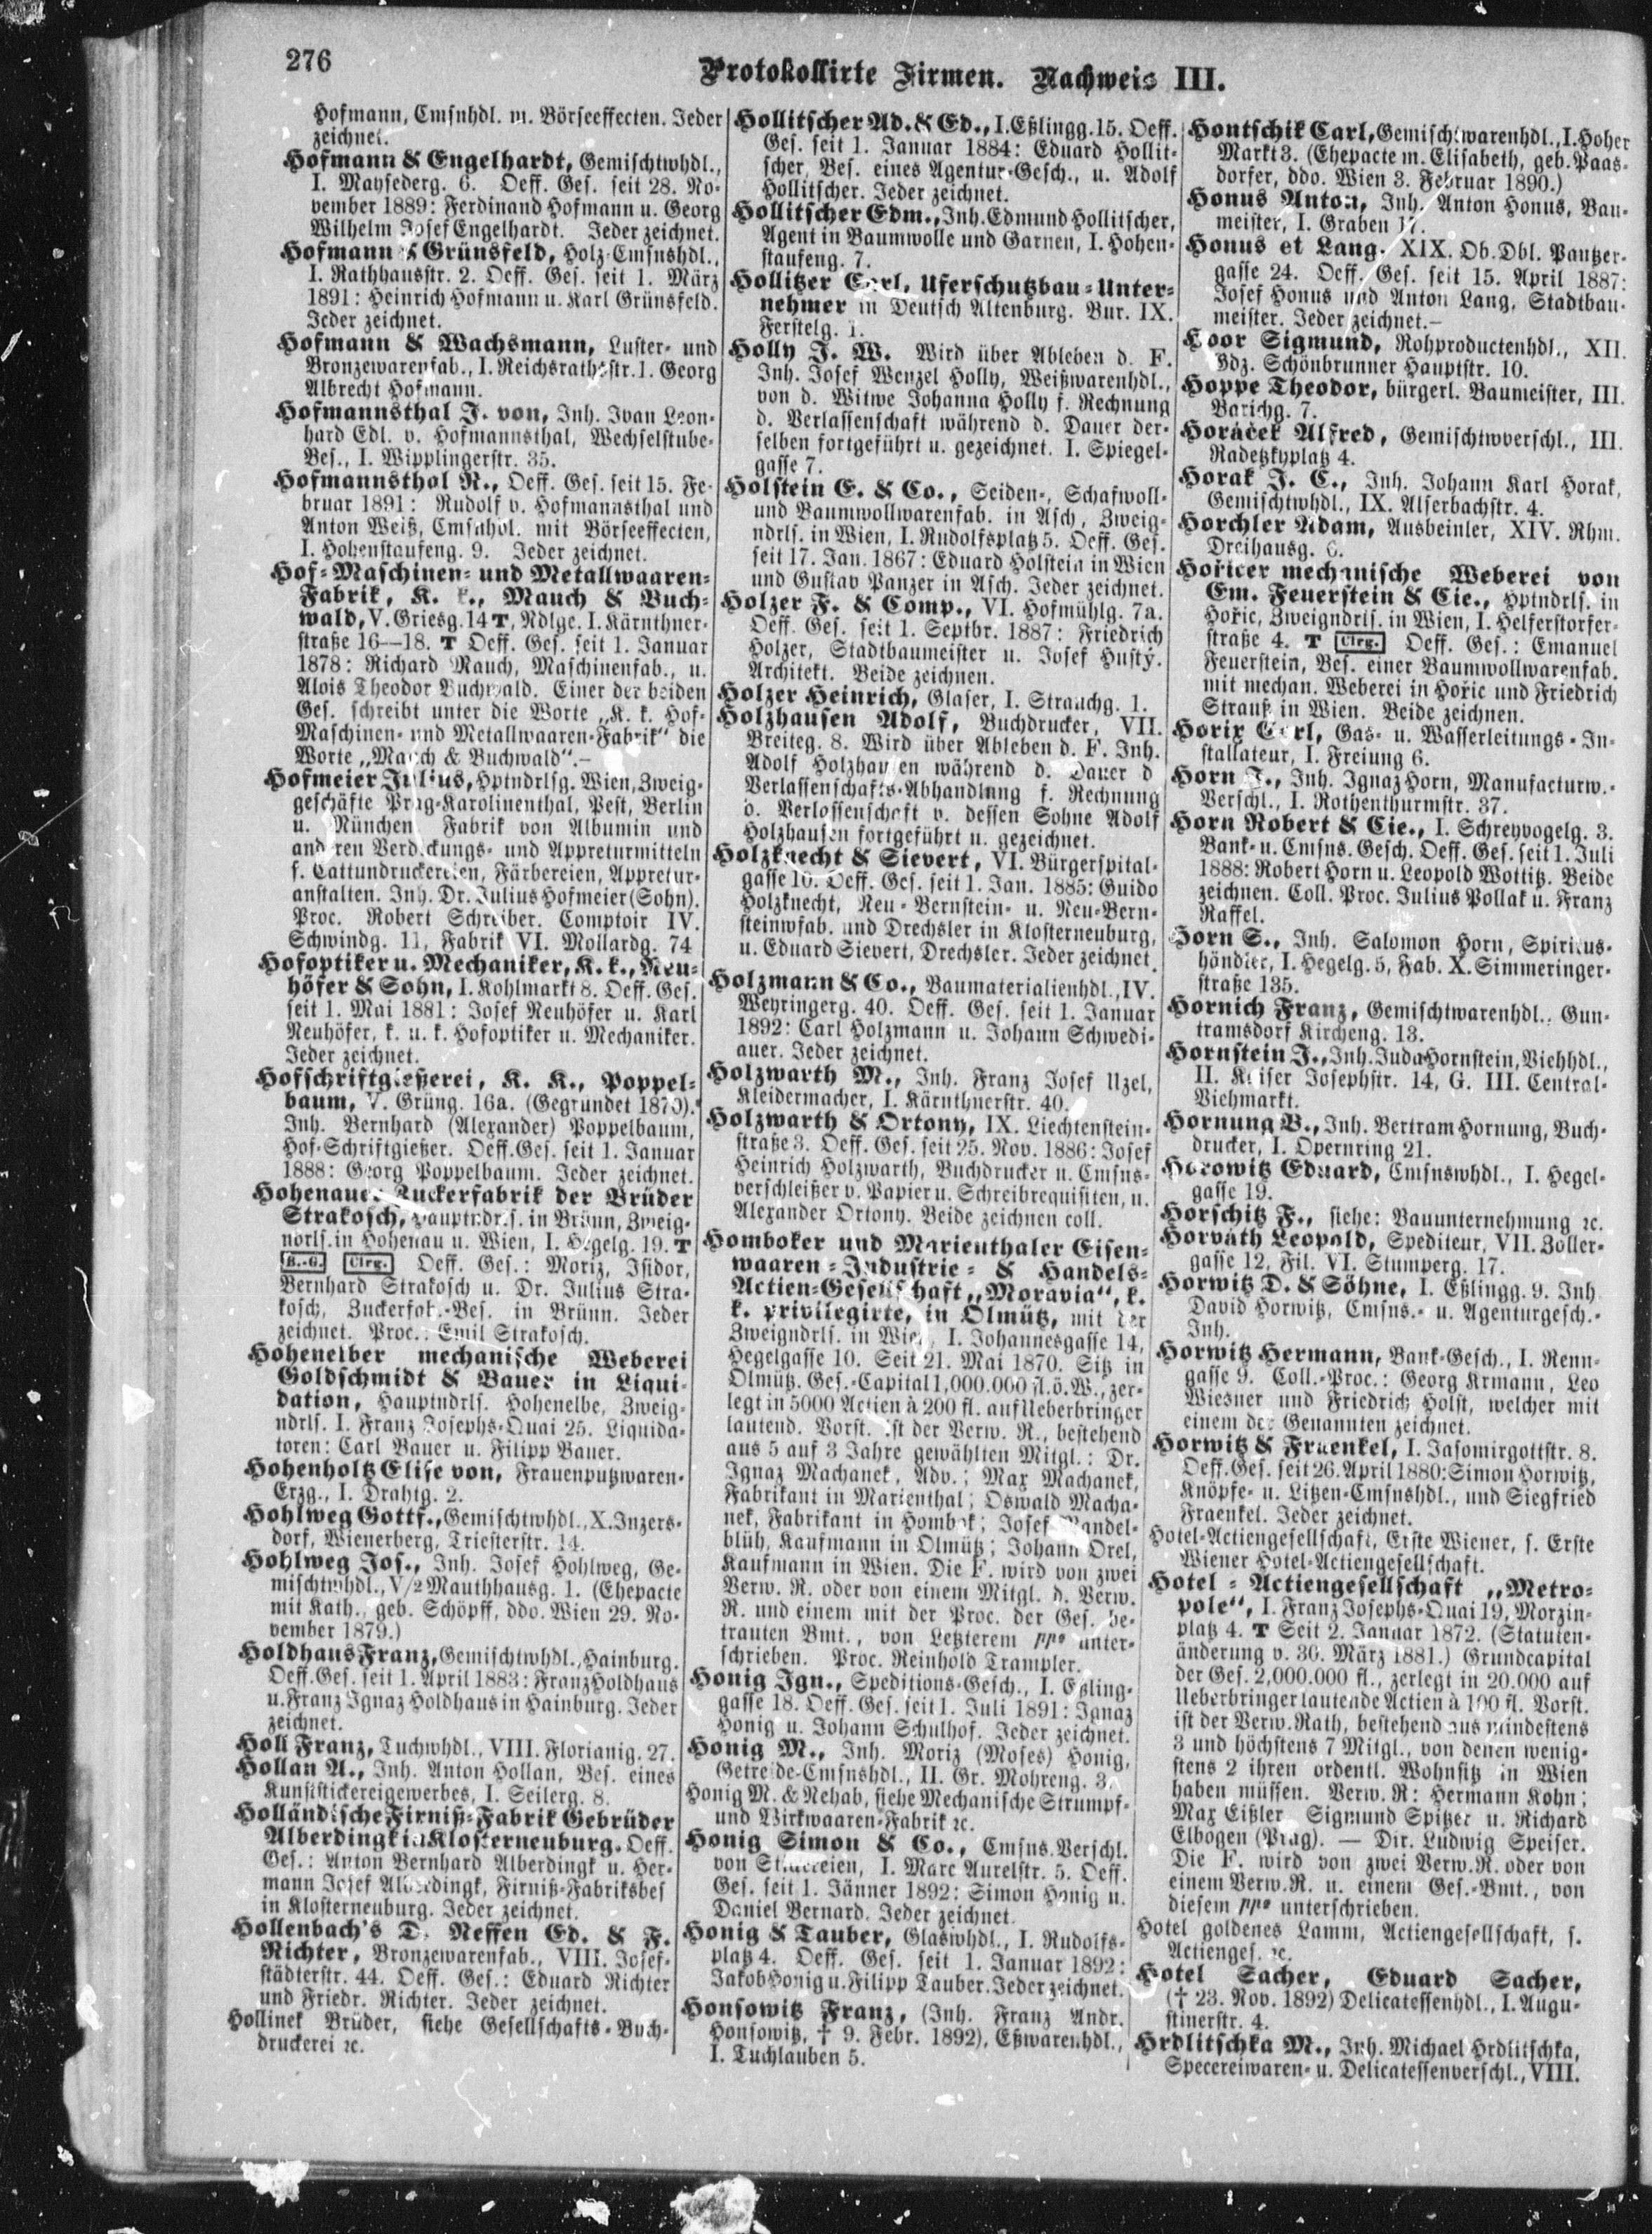 276
Protokollirte Firmen. Nachweis III.
Hofmann, Cmsnhdl. m. Börseeffecten. Jeder
zeichnet.
Hofmann & Engelhardt, Gemischtwhdl.,
I. Maysederg. 6. Oeff. Ges. seit 28. No-
vember 1889: Ferdinand Hofmann u. Georg
Wilhelm Josef Engelhardt. Jeder zeichnet.
Hofmann & Grünsfeld, Holz-Cmsnshdl.,
I. Rathhausstr. 2. Oeff. Ges. seit 1. März
1891: Heinrich Hofmann u. Karl Grünsfeld.
Jeder zeichnet.
Hofmann & Wachsmann, Luster- und
Bronzewarenfab., I. Reichsrathsstr. 1. Georg
Albrecht Hofmann.
Hofmannsthal J. von, Inh. Ivan Leon-
hard Edl. v. Hofmannsthal, Wechselstube-
Bes., I. Wipplingerstr. 35.
Hofmannsthal R., Oeff. Ges. seit 15. Fe-
bruar 1891: Rudolf v. Hofmannsthal und
Anton Weiß, Cmsnhdl. mit Börseeffecten,
I. Hohenstaufeng. 9. Jeder zeichnet.
Hof-Maschinen- und Metallwaaren-
Fabrik, K. k., Mauch & Buch-
wald, V. Griesg. 14 T, Ndlge. I. Kärnthner-
straße 16—18. T Oeff. Ges. seit 1. Januar
1878: Richard Mauch, Maschinenfab., u.
Alois Theodor Buchwald. Einer der beiden
Ges. schreibt unter die Worte „K. k. Hof-
Maschinen- und Metallwaaren-Fabrik“ die
Worte „Mauch & Buchwald“.—
Hofmeier Julius, Hptndrlsg. Wien, Zweig-
geschäfte Prag-Karolinenthal, Pest, Berlin
u. München Fabrik von Albumin und
anderen Verdickungs- und Appreturmitteln
f. Cattundruckereien, Färbereien, Appretur-
anstalten. Inh. Dr. Julius Hofmeier (Sohn).
Proc. Robert Schreiber. Comptoir IV.
Schwindg. 11, Fabrik VI. Mollardg. 74
Hofoptiker u. Mechaniker, K. k., Neu-
höfer & Sohn, I. Kohlmarkt 8. Oeff. Ges.
seit 1. Mai 1881: Josef Neuhöfer u. Karl
Neuhöfer, k. u. k. Hofoptiker u. Mechaniker.
Jeder zeichnet.
Hofschriftgießerei, K. K., Poppel-
baum, V. Grüng. 16a. (Gegründet 1870).
Inh. Bernhard (Alexander) Poppelbaum,
Hof-Schriftgießer. Oeff. Ges. seit 1. Januar
1888: Georg Poppelbaum. Jeder zeichnet.
Hohenauer Zuckerfabrik der Brüder
Strakosch, Hauptndrls. in Brünn, Zweig-
ndrls. in Hohenau u. Wien, I. Hegelg. 19. T
B.-G. Clrg. Oeff. Ges.: Moriz, Isidor,
Bernhard Strakosch u. Dr. Julius Stra-
kosch, Zuckerfab.-Bes. in Brünn. Jeder
zeichnet. Proc.: Emil Strakosch.
Hohenelber mechanische Weberei
Goldschmidt & Bauer in Liqui-
dation, Hauptndrls. Hohenelbe, Zweig-
ndrls. I. Franz Josephs-Quai 25. Liquida-
toren: Carl Bauer u. Filipp Bauer.
Hohenholtz Elise von, Frauenputzwaren-
Erzg., I. Drahtg. 2.
Hohlweg Gottf., Gemischtwhdl., X. Inzers-
dorf, Wienerberg, Triesterstr. 14.
Hohlweg Jos., Inh. Josef Hohlweg, Ge-
mischtwhdl., V/2 Mauthhausg. 1. (Ehepacte
mit Kath., geb. Schöpff, ddo. Wien 29. No-
vember 1879.)
Holdhaus Franz, Gemischtwhdl., Hainburg.
Oeff. Ges. seit 1. April 1883: Franz Holdhaus
u. Franz Ignaz Holdhaus in Hainburg. Jeder
zeichnet.
Holl Franz, Tuchwhdl., VIII. Florianig. 27.
Hollan A., Inh. Anton Hollan, Bes. eines
Kunststickereigewerbes, I. Seilerg. 8.
Holländische Firniß-Fabrik Gebrüder
Alberdingk in Klosterneuburg. Oeff.
Ges.: Anton Bernhard Alberdingk u. Her-
mann Josef Alberdingk, Firniß-Fabriksbes
in Klosterneuburg. Jeder zeichnet.
Hollenbach's D. Neffen Ed. & F.
Richter, Bronzewarenfab., VIII. Josef-
städterstr. 44. Oeff. Ges.: Eduard Richter
und Friedr. Richter. Jeder zeichnet.
Hollinek Brüder, siehe Gesellschafts-Buch-
druckerei ꝛc.
Hollitscher Ad. & Ed., I. Eßlingg. 15. Oeff.
Ges. seit 1. Januar 1884: Eduard Hollit-
scher, Bes. eines Agentur-Gesch., u. Adolf
Hollitscher. Jeder zeichnet.
Hollitscher Edm., Inh. Edmund Hollitscher,
Agent in Baumwolle und Garnen, I. Hohen-
staufeng. 7.
Hollitzer Carl, Uferschutzbau-Unter-
nehmer in Deutsch Altenburg. Bur. IX.
Ferstelg. 1.
Holly J. W. Wird über Ableben d. F.
Inh. Josef Wenzel Holly, Weißwarenhdl.,
von d. Witwe Johanna Holly f. Rechnung
d. Verlassenschaft während d. Dauer der-
selben fortgeführt u. gezeichnet. I. Spiegel-
gasse 7.
Holstein E. & Co., Seiden-, Schafwoll-
und Baumwollwarenfab. in Asch, Zweig-
ndrls. in Wien, I. Rudolfsplatz 5. Oeff. Ges.
seit 17. Jan. 1867: Eduard Holstein in Wien
und Gustav Panzer in Asch. Jeder zeichnet.
Holzer F. & Comp., VI. Hofmühlg. 7a.
Oeff. Ges. seit 1. Septbr. 1887: Friedrich
Holzer, Stadtbaumeister u. Josef Hustý.
Architekt. Beide zeichnen.
Holzer Heinrich, Glaser, I. Strauchg. 1.
Holzhausen Adolf, Buchdrucker, VII.
Breiteg. 8. Wird über Ableben d. F. Inh.
Adolf Holzhausen während d. Dauer d
Verlassenschafts-Abhandlung f. Rechnung
d. Verlossenschaft v. dessen Sohne Adolf
Holzhausen fortgeführt u. gezeichnet.
Holzknecht & Sievert, VI. Bürgerspital-
gasse 10. Oeff. Ges. seit 1. Jan. 1885: Guido
Holzknecht, Neu-Bernstein- u. Neu-Bern-
steinwfab. und Drechsler in Klosterneuburg,
u. Eduard Sievert, Drechsler. Jeder zeichnet.
Holzmann & Co., Baumaterialienhdl., IV.
Weyringerg. 40. Oeff. Ges. seit 1. Januar
1892: Carl Holzmann u. Johann Schwedi-
auer. Jeder zeichnet.
Holzwarth M., Inh. Franz Josef Uzel,
Kleidermacher, I. Kärnthnerstr. 40.
Holzwarth & Ortony, IX. Liechtenstein-
straße 3. Oeff. Ges. seit 25. Nov. 1886: Josef
Heinrich Holzwarth, Buchdrucker u. Cmsns-
verschleißer v. Papier u. Schreibrequisiten, u.
Alexander Ortony. Beide zeichnen coll.
Homboker und Marienthaler Eisen-
waaren-Industrie- & Handels-
Actien-Gesellschaft „Moravia“, k.
k. privilegirte, in Olmütz, mit der
Zweigndrls. in Wien, I. Johannesgasse 14,
Hegelgasse 10. Seit 21. Mai 1870. Sitz in
Olmütz. Ges.-Capital 1,000.000 fl. ö. W., zer-
legt in 5000 Actien à 200 fl. auf Ueberbringer
lautend. Vorst. ist der Verw. R., bestehend
aus 5 auf 3 Jahre gewählten Mitgl.: Dr.
Ignaz Machanek, Adv.; Max Machanek,
Fabrikant in Marienthal; Oswald Macha-
nek, Fabrikant in Hombok; Josef Mandel-
blüh, Kaufmann in Olmütz; Johann Orel,
Kaufmann in Wien. Die F. wird von zwei
Verw. R. oder von einem Mitgl. d. Verw.
R. und einem mit der Proc. der Ges. be-
trauten Bmt., von Letzterem ppa unter-
schrieben. Proc. Reinhold Trampler.
Honig Ign., Speditions-Gesch., I. Eßling-
gasse 18. Oeff. Ges. seit 1. Juli 1891: Ignaz
Honig u. Johann Schulhof. Jeder zeichnet.
Honig M., Inh. Moriz (Moses) Honig,
Getreide-Cmsnshdl., II. Gr. Mohreng. 3
Honig M. & Nehab, siehe Mechanische Strumpf-
und Wirkwaaren-Fabrik ꝛc.
Honig Simon & Co., Cmsns. Verschl.
von Stickereien, I. Marc Aurelstr. 5. Oeff.
Ges. seit 1. Jänner 1892: Simon Honig u.
Daniel Bernard. Jeder zeichnet.
Honig & Tauber, Glaswhdl., I. Rudolfs-
platz 4. Oeff. Ges. seit 1. Januar 1892:
Jakob Honig u. Filipp Tauber. Jeder zeichnet.
Honsowitz Franz, (Inh. Franz Andr.
Honsowitz, † 9. Febr. 1892), Eßwarenhdl.,
I. Tuchlauben 5.
Hontschik Carl, Gemischtwarenhdl., I. Hoher
Markt 3. (Ehepacte m. Elisabeth, geb. Paas-
dorfer, ddo. Wien 3. Februar 1890.)
Honus Anton, Inh. Anton Honus, Bau-
meister, I. Graben 17.
Honus et Lang. XIX. Ob. Dbl. Pantzer-
gasse 24. Oeff. Ges. seit 15. April 1887:
Josef Honus und Anton Lang, Stadtbau-
meister. Jeder zeichnet.—
Hoor Sigmund, Rohproductenhdl., XII.
Gdz. Schönbrunner Hauptstr. 10.
Hoppe Theodor, bürgerl. Baumeister, III.
Barichg. 7.
Horáček Alfred, Gemischtwverschl., III.
Radetzkyplatz 4.
Horak J. C., Inh. Johann Karl Horak,
Gemischtwhdl., IX. Alserbachstr. 4.
Horchler Adam, Ausbeinler, XIV. Rhm.
Dreihausg. 6.
Hořicer mechanische Weberei von
Em. Feuerstein & Cie., Hptndrls. in
Hořic, Zweigndrls. in Wien, I. Helferstorfer-
straße 4. T Clrg. Oeff. Ges.: Emanuel
Feuerstein, Bes. einer Baumwollwarenfab.
mit mechan. Weberei in Hořic und Friedrich
Strauß in Wien. Beide zeichnen.
Horix Carl, Gas- u. Wasserleitungs-In-
stallateur, I. Freiung 6.
Horn J., Inh. Ignaz Horn, Manufacturw.-
Verschl., I. Rothenthurmstr. 37.
Horn Robert & Cie., I. Schreyvogelg. 3.
Bank- u. Cmsns. Gesch. Oeff. Ges. seit 1. Juli
1888: Robert Horn u. Leopold Wottitz. Beide
zeichnen. Coll. Proc. Julius Pollak u. Franz
Raffel.
Horn S., Inh. Salomon Horn, Spiritus-
händler, I. Hegelg. 5, Fab. X. Simmeringer-
straße 135.
Hornich Franz, Gemischtwarenhdl., Gun-
tramsdorf Kircheng. 13.
Hornstein J., Inh. Juda Hornstein, Viehhdl.,
II. Kaiser Josephstr. 14, G. III. Central-
Viehmarkt.
Hornung B., Inh. Bertram Hornung, Buch-
drucker, I. Opernring 21.
Horowitz Eduard, Cmsnswhdl., I. Hegel-
gasse 19.
Horschitz F., siehe: Bauunternehmung ꝛc.
Horváth Leopold, Spediteur, VII. Zoller-
gasse 12, Fil. VI. Stumperg. 17.
Horwitz D. & Söhne, I. Eßlingg. 9. Inh
David Horwitz, Cmsns.- u. Agenturgesch.-
Inh.
Horwitz Hermann, Bank-Gesch., I. Renn-
gasse 9. Coll.-Proc.: Georg Krmann, Leo
Wiesner und Friedrich Holst, welcher mit
einem der Genannten zeichnet.
Horwitz & Fraenkel, I. Jasomirgottstr. 8.
Oeff. Ges. seit 26. April 1880: Simon Horwitz,
Knöpfe- u. Litzen-Cmsnshdl., und Siegfried
Fraenkel. Jeder zeichnet.
Hotel-Actiengesellschaft, Erste Wiener, s. Erste
Wiener Hotel-Actiengesellschaft.
Hotel-Actiengesellschaft „Metro-
pole“, I. Franz Josephs-Quai 19, Morzin-
platz 4. T Seit 2. Januar 1872. (Statuten-
änderung v. 30. März 1881.) Grundcapital
der Ges. 2,000.000 fl., zerlegt in 20.000 auf
Ueberbringer lautende Actien à 100 fl. Vorst.
ist der Verw. Rath, bestehend aus mindestens
3 und höchstens 7 Mitgl., von denen wenig-
stens 2 ihren ordentl. Wohnsitz in Wien
haben müssen. Verw. R: Hermann Kohn;
Max Eißler Sigmund Spitzer u. Richard
Elbogen (Prag). — Dir. Ludwig Speiser.
Die F. wird von zwei Verw. R. oder von
einem Verw. R. u. einem Ges.-Bmt., von
diesem ppa unterschrieben.
Hotel goldenes Lamm, Actiengesellschaft, s.
Actienges. ꝛc.
Hotel Sacher, Eduard Sacher,
(† 23. Nov. 1892) Delicatessenhdl., I. Augu-
stinerstr. 4.
Hrdlitschka M., Inh. Michael Hrdlitschka,
Specereiwaren- u. Delicatessenverschl., VIII.